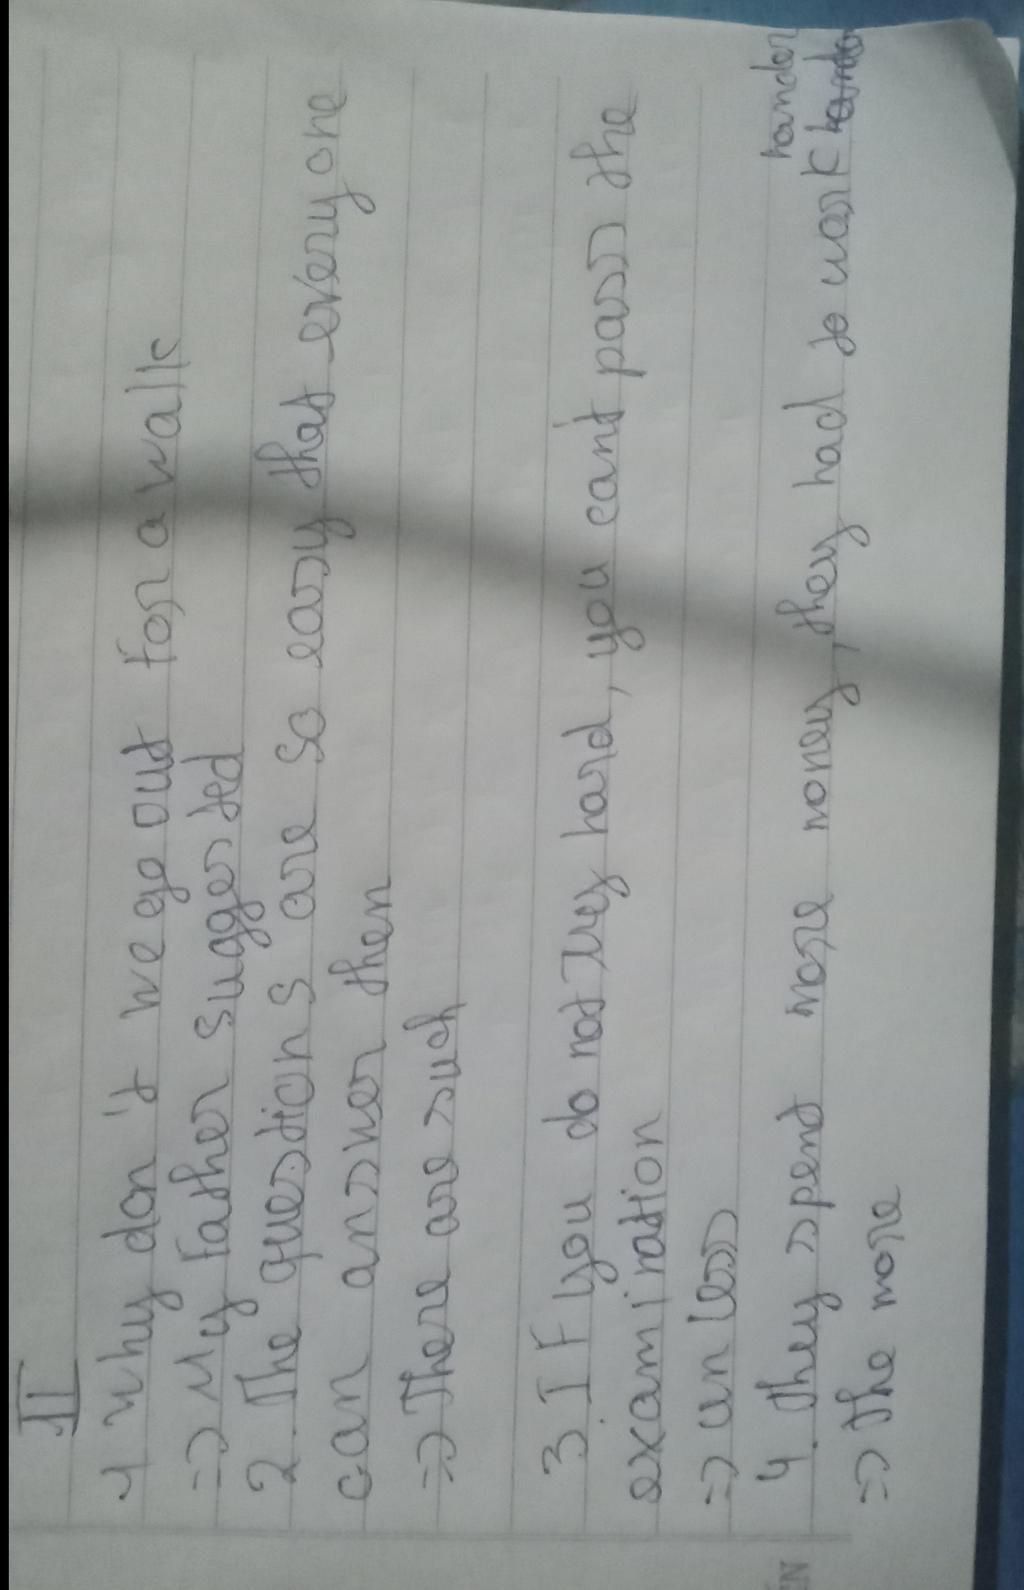 II
1 Why don't we go out for a walk
=> My father suggested
2. The questions are so easy that every one
can answer them
=> There are such
3. If you do not try hard, you can't pass the
examination
=> unless
4. they spend more money, they had to work harder
=> the more
EN